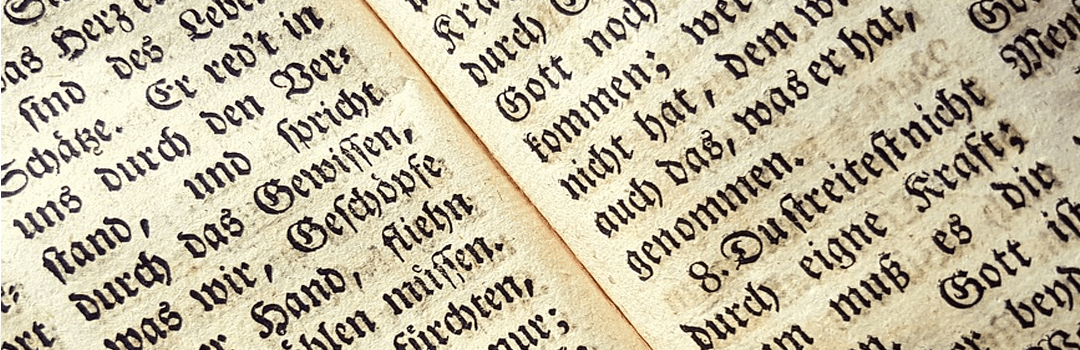 das Herz
sind des Leben
Schätze. Er red't in
uns durch den Ver-
stand, und spricht
durch das Gewissen,
was wir, Geschöpfe
Hand, fliehn
müssen.
fürchten,
nur;
durch
Gott noch
kommen; wer
nicht hat, dem
auch das, was er hat,
genommen.
8. Du streitest nicht
durch eigne Kraft;
muß es dir
Gott ist